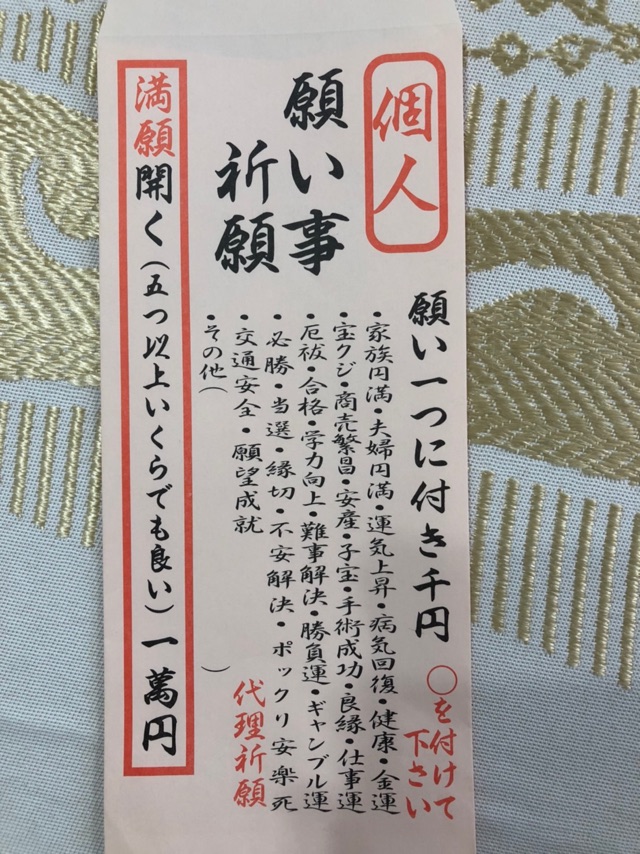 個人
願い事
祈願
願い一つに付き千円
○を付けて
下さい
・家族円満・夫婦円満・運気上昇・病気回復・健康・金運
・宝クジ・商売繁昌・安産・子宝・手術成功・良縁・仕事運
・厄祓・合格・学力向上・難事解決・勝負運・ギャンブル運
・必勝・当選・縁切・不安解決・ポックリ安楽死
・交通安全・願望成就
・その他（　　　）
代理祈願
満願開く（五つ以上いくらでも良い）一萬円